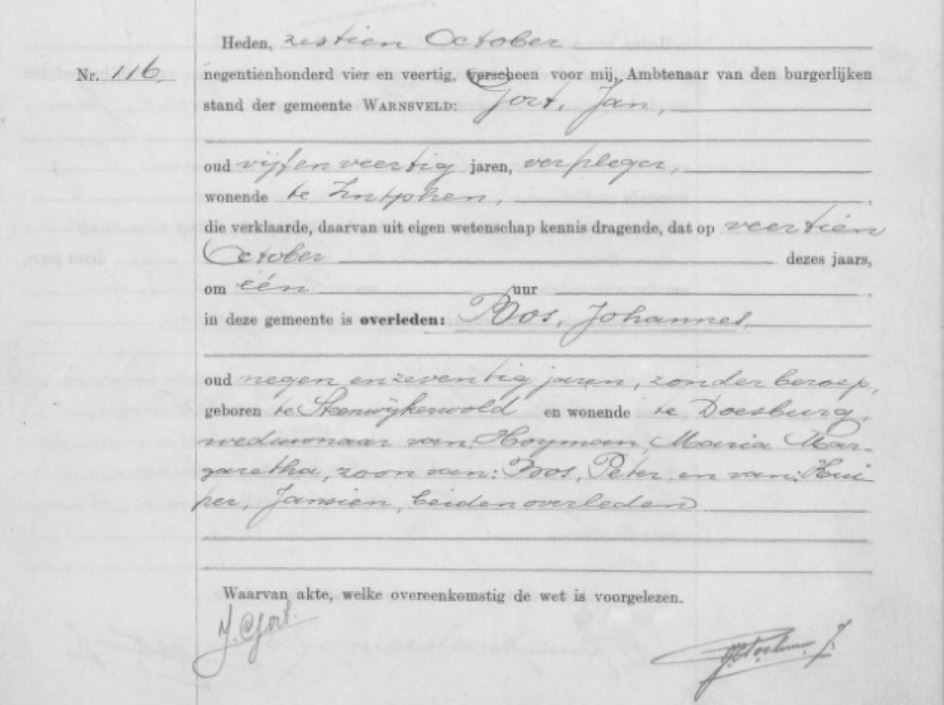 Heden, zestien October
Nr. 116 negentienhonderd vier en veertig, verscheen voor mij, Ambtenaar van den burgerlijken
stand der gemeente WARNSVELD: Gort, Jan,
oud vijf en veertig jaren, verpleger,
wonende te Zutphen,
die verklaarde, daarvan uit eigen wetenschap kennis dragende, dat op veertien
October dezes jaars,
om één uur
in deze gemeente is overleden: Bos, Johannes,
oud negen en zeventig jaren, zonder beroep,
geboren te Steenwijkerwold en wonende te Doesburg,
weduwnaar van: Hoyman, Maria Mar-
garetha, zoon van: Bos, Peter, en van: Kui
per, Jansien, beiden overleden
Waarvan akte, welke overeenkomstig de wet is voorgelezen.
J. Gort.